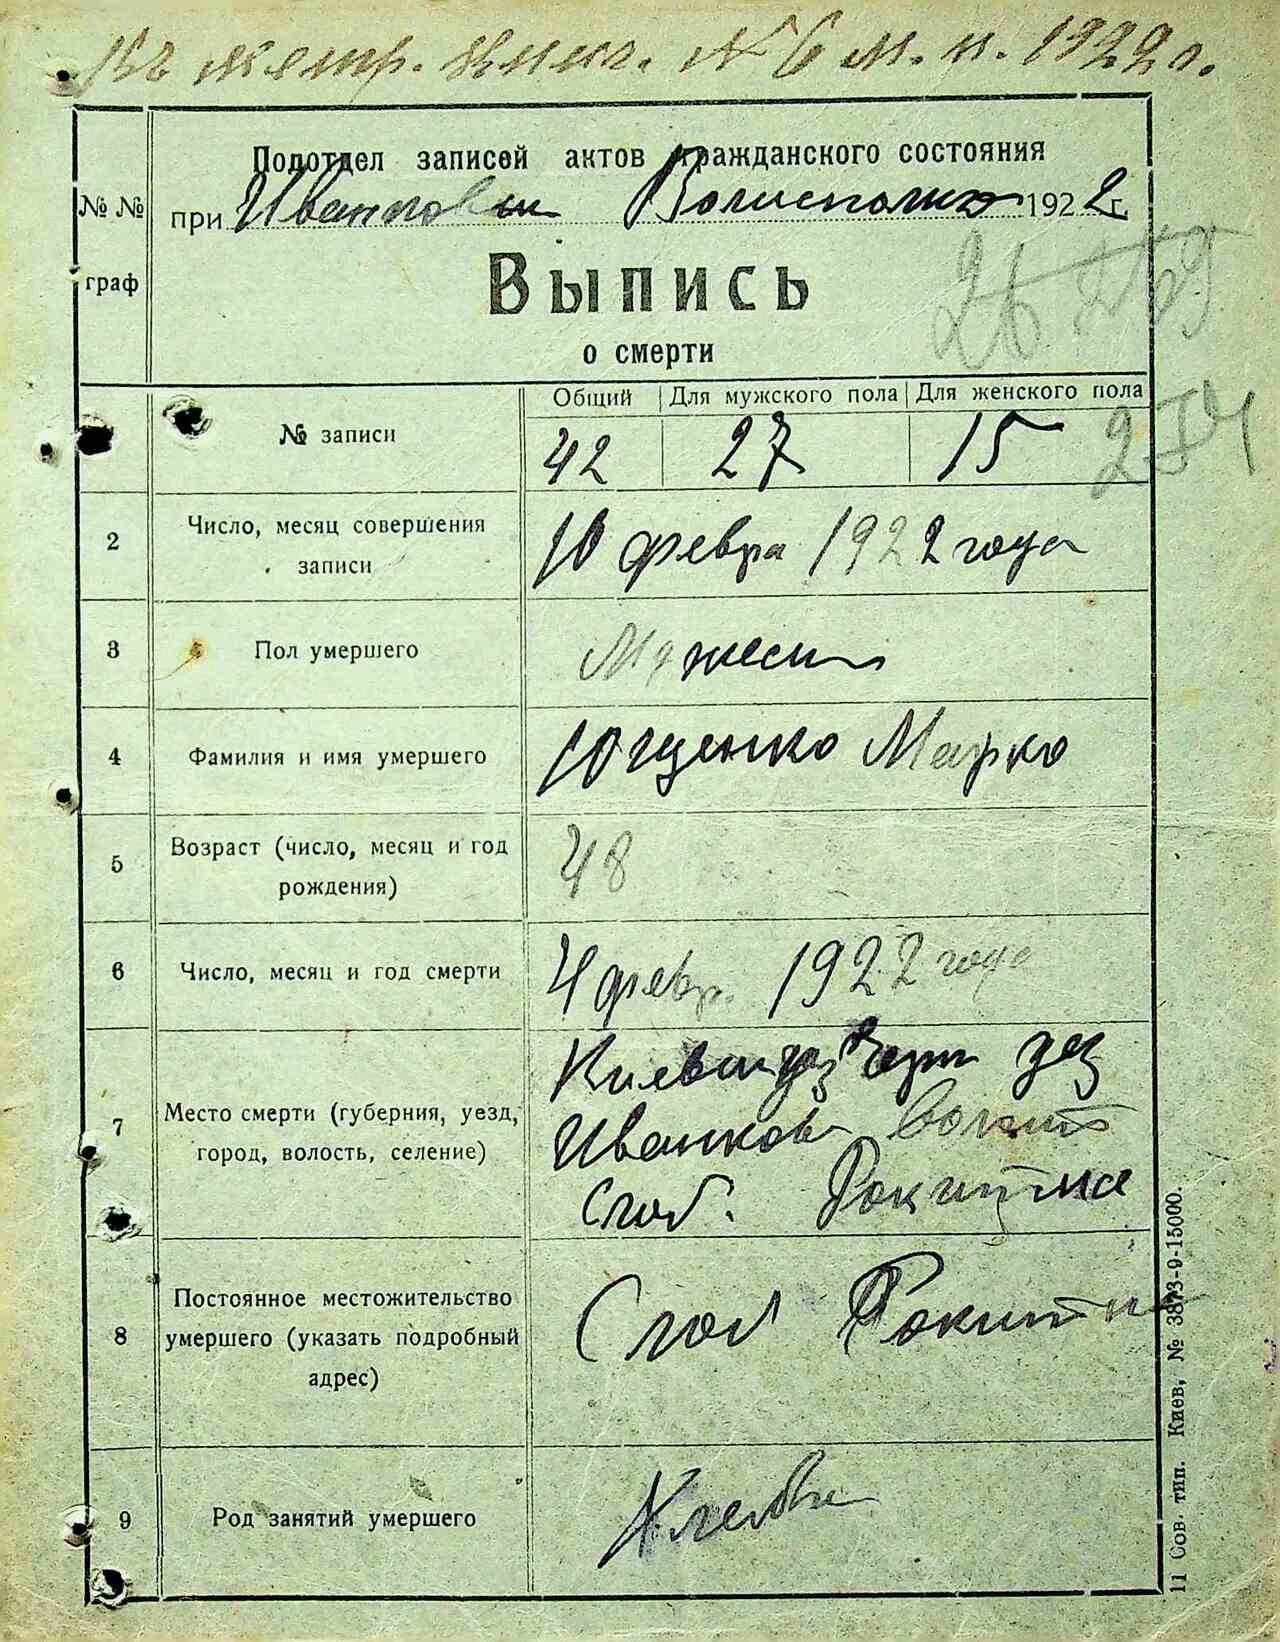 Къ метр. книг. № 6 м. п. 1922 г.
Подотдел записей актов гражданского состояния
при Иванков Волисполко 1922 г.
№ №
граф
Выпись
о смерти
26
Общий Для мужского пола Для женского пола
№ записи 42 27 15
2 Число, месяц совершения записи 10 февра 1922 года
3 Пол умершего Мужеск
4 Фамилия и имя умершего Ющенко Марко
5 Возраст (число, месяц и год рождения) 48
6 Число, месяц и год смерти 4 февр. 1922 года
7 Место смерти (губерния, уезд, город, волость, селение) Киевск губ Черн уез
Иванков волост
Слоб.
8 Постоянное местожительство умершего (указать подробный адрес) Слоб
9 Род занятий умершего Хлебо
11 Сов. тип. Киев, № 3873-9-15000.